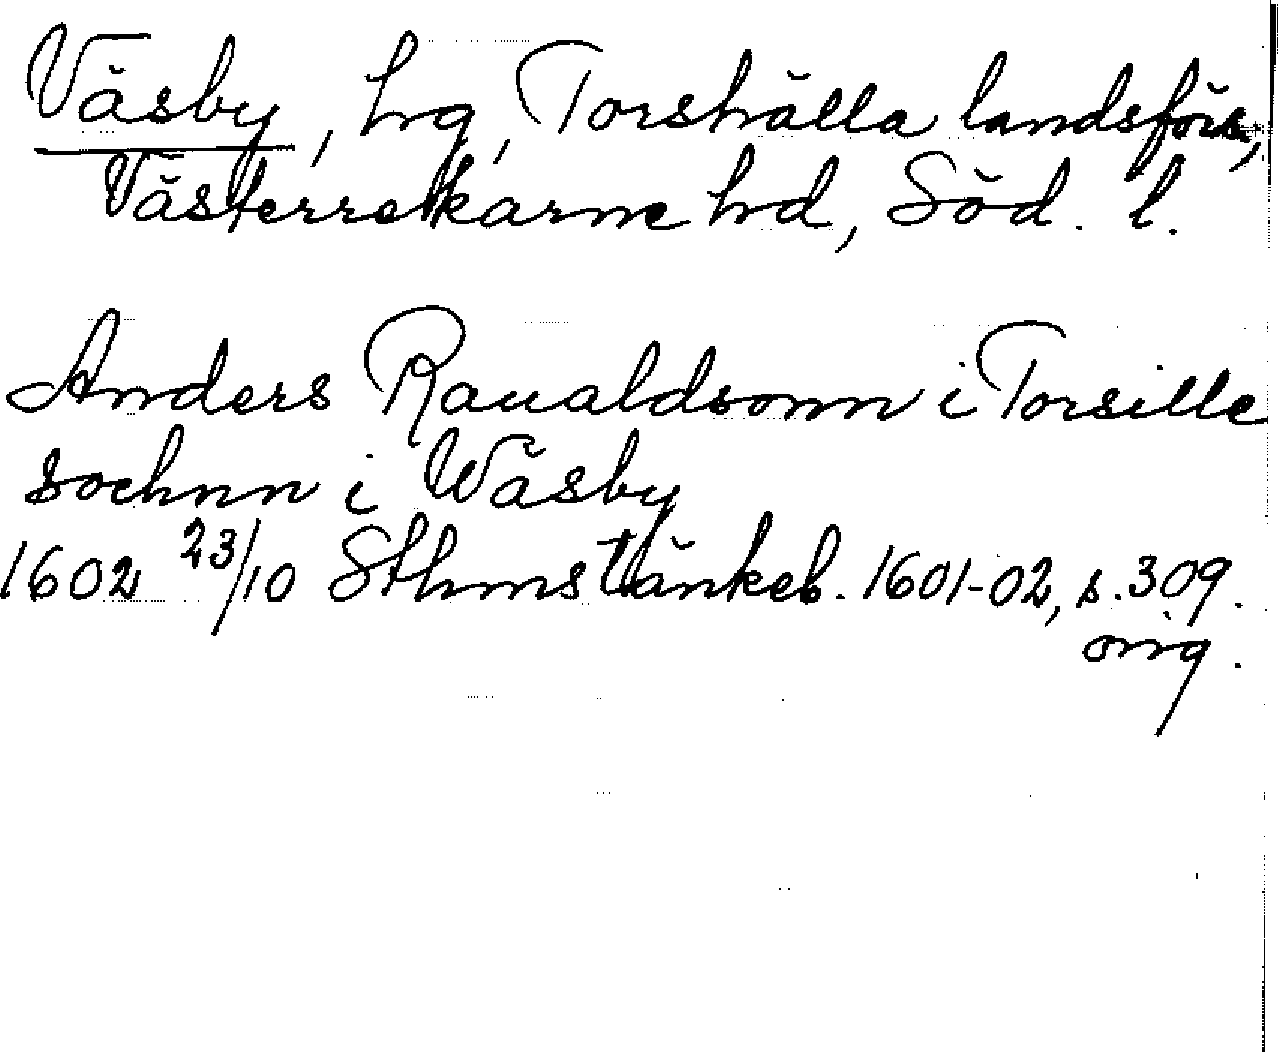 Väsby, hg, Torshälla landsförs.,
Västerrekarne hd, Söd. l.
Anders Raualdsonn i Torsille
sochnn i Wäsby
1602 23/10 Sthmstänkeb. 1601-02, s. 309.
orig.